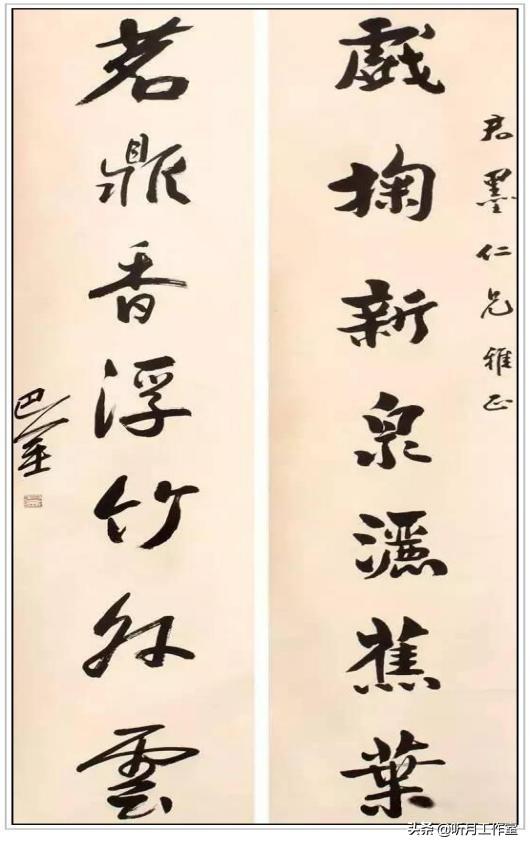 君墨仁兄雅正
戲掬新泉灑蕉葉
茗鼎香浮竹外雲
头条 @听月工作室